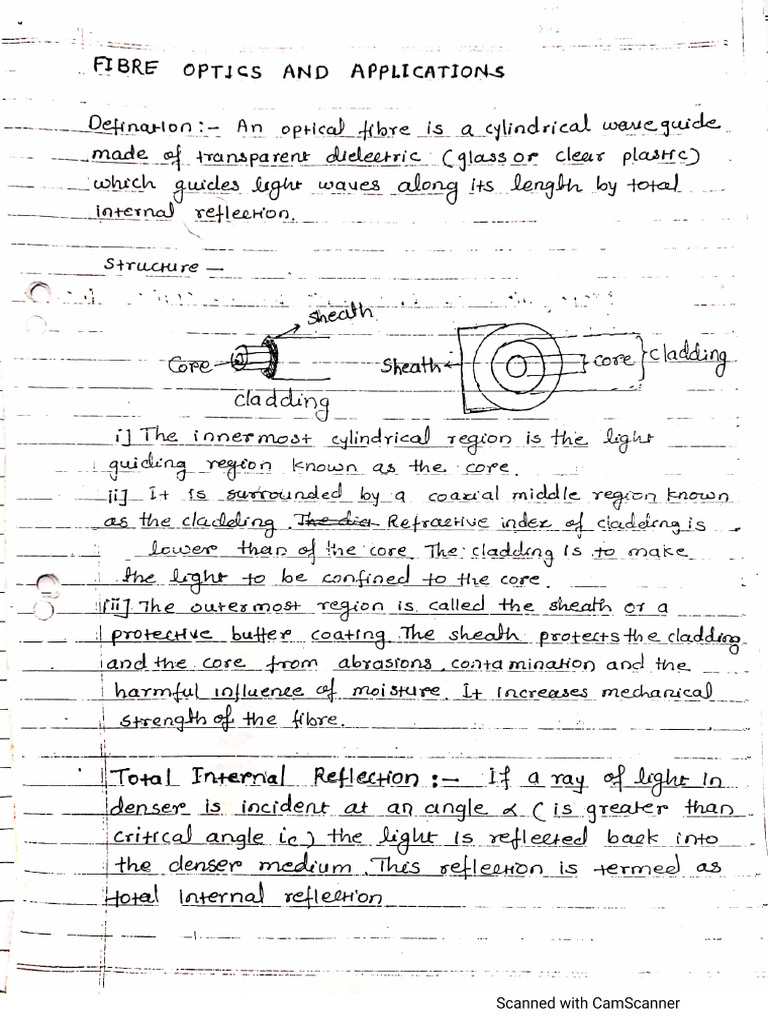 FIBRE OPTICS AND APPLICATIONS
Defination:- An optical fibre is a cylindrical wave guide
made of transparent dielectric (glass or clear plastic)
which guides light waves along its length by total
internal reflection.
Structure —
sheath
Core
cladding
Sheath
core
cladding
i] The innermost cylindrical region is the light
guiding region known as the core.
ii] It is surrounded by a coaxial middle region known
as the cladding. The dia Refractive index of cladding is
lower than of the core. The cladding is to make
the light to be confined to the core.
iii] The outermost region is called the sheath or a
protective buffer coating. The sheath protects the cladding
and the core from abrasions, contamination and the
harmful influence of moisture. It increases mechanical
strength of the fibre.
Total Internal Reflection :- If a ray of light in
denser is incident at an angle α (is greater than
critical angle ic) the light is reflected back into
the denser medium. This reflection is termed as
total internal reflection
Scanned with CamScanner